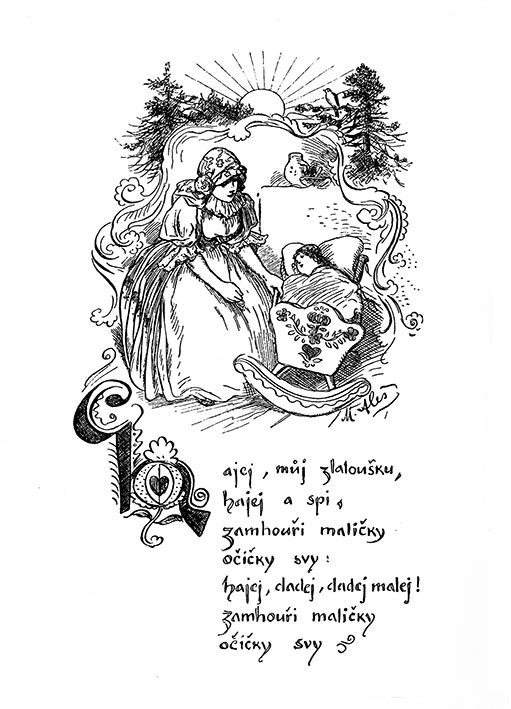 M. Aleš
Hajej, můj zlatoušku,
hajej a spi,
zamhouři maličky
očičky svy:
hajej, dadej, dadej malej!
zamhouři maličky
očičky svy